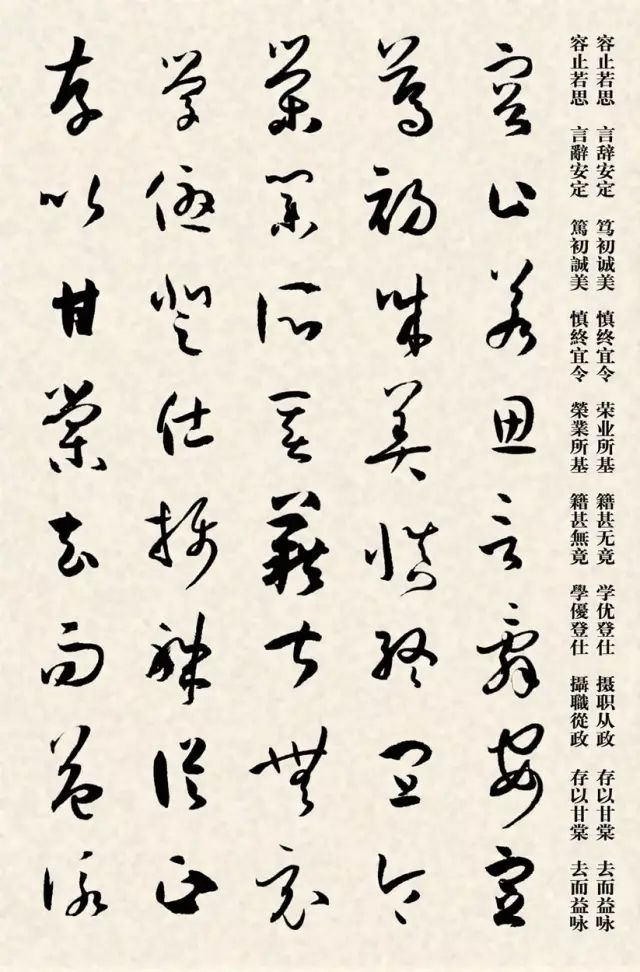 容止若思 言辞安定 笃初诚美 慎终宜令 荣业所基 籍甚无竟 学优登仕 摄职从政 存以甘棠 去而益咏
容止若思 言辭安定 篤初誠美 慎終宜令 榮業所基 籍甚無竟 學優登仕 攝職從政 存以甘棠 去而益咏
容止若思言辭安定
篤初誠美慎終宜令
榮業所基籍甚無竟
學優登仕攝職從政
存以甘棠去而益詠